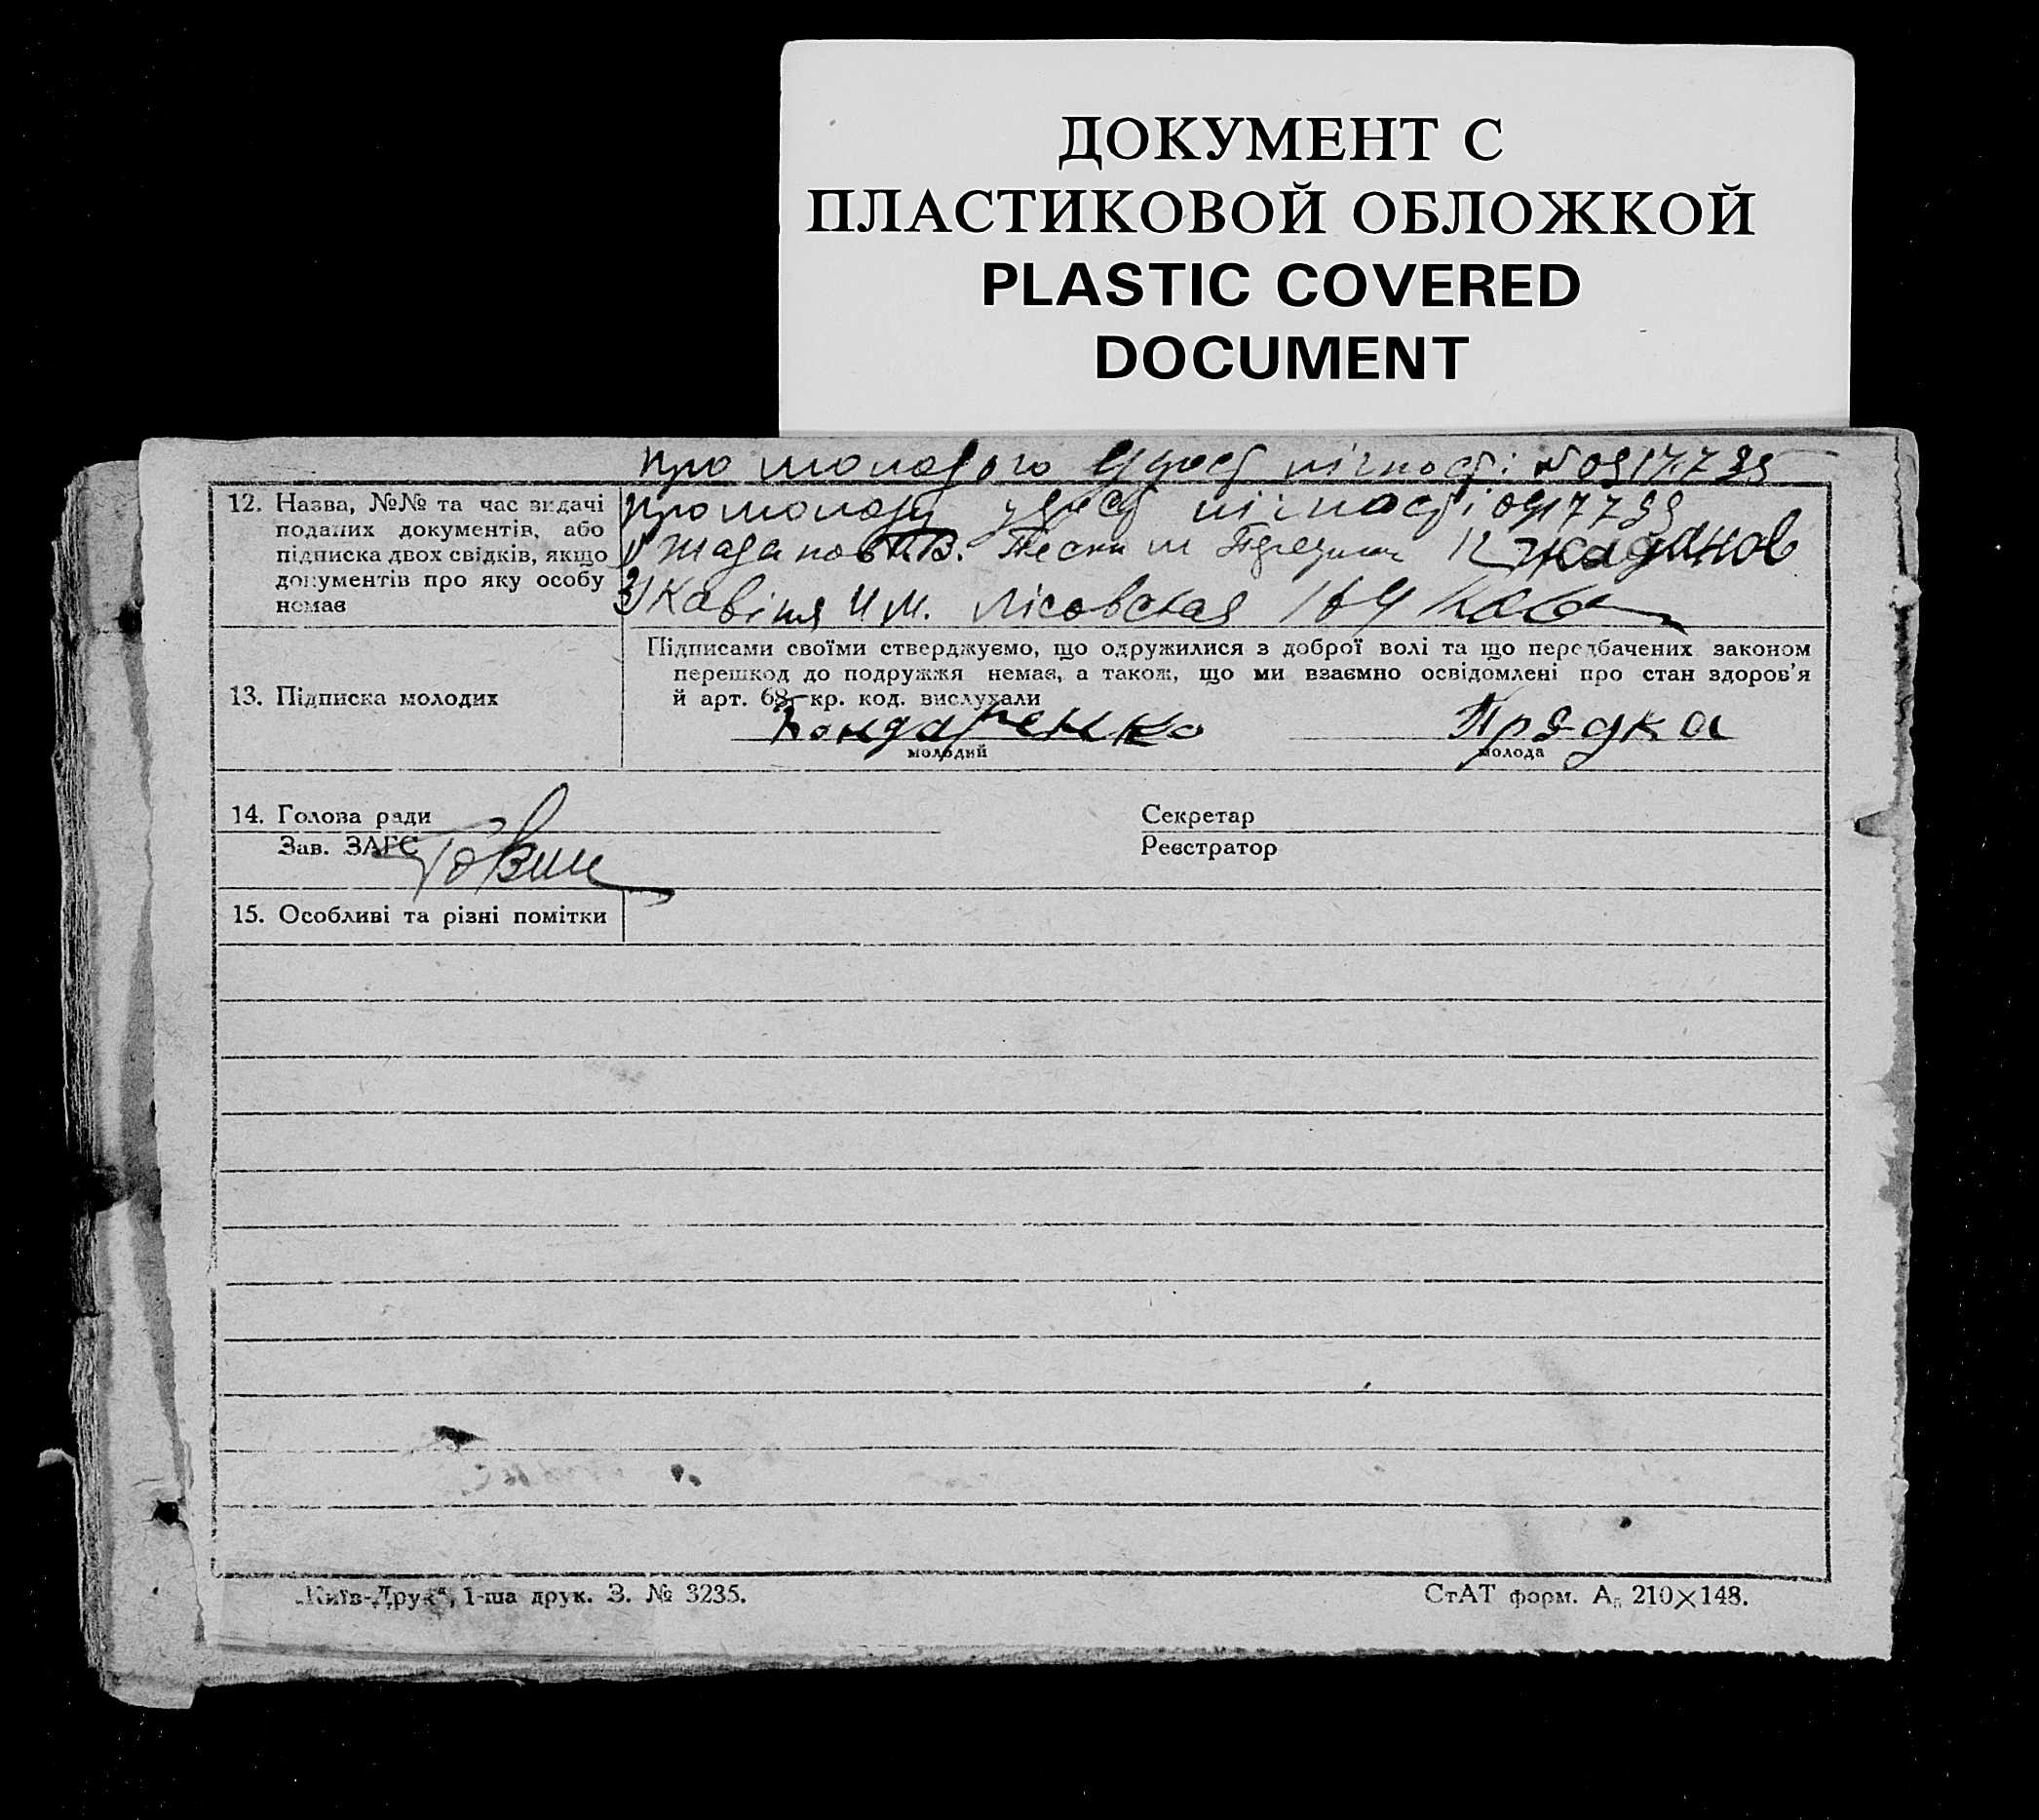 ДОКУМЕНТ С
ПЛАСТИКОВОЙ ОБЛОЖКОЙ
PLASTIC COVERED
DOCUMENT
про молодого удост лічності №
12. Назва, №№ та час видачі
поданих документів, або
підписка двох свідків, якщо
документів про яку особу
немає
про молоду удост лічності
1) Жаданов Жаданов
2) И М. Лісовская
13. Підписка молодих
Підписами своїми стверджуємо, що одружилися з доброї волі та що передбачених законом
перешкод до подружжя немає, а також, що ми взаємно освідомлені про стан здоров'я
й арт. 68 кр. код. вислухали
Бондаренко Прядка
молодий молода
14. Голова ради Секретар
Зав. ЗАГС Реєстратор
15. Особливі та різні помітки
„Київ-Друк“, 1-ша друк. З. № 3235. СтАТ форм. А₅ 210×148.